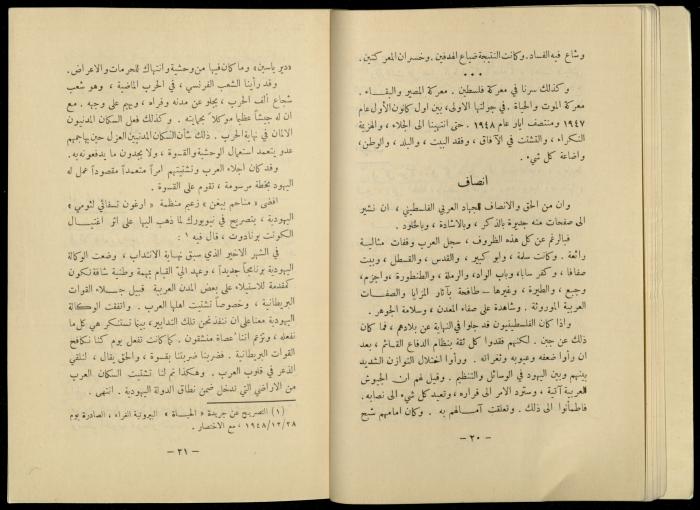 وشاع فيه الفساد. وكانت النتيجة ضياع الهدفين. وخسران المعركتين.
•••
وكذلك سرنا في معركة فلسطين. معركة المصير والبقاء.
معركة الموت والحياة. في جولتها الاولى، بين اول كانون الأول عام
١٩٤٧ ومنتصف ايار عام ١٩٤٨. حتى انتهينا الى الجلاء، والهزيمة
النكراء، والتشتت في الآفاق، وفقد البيت، والبلد، والوطن،
واضاعة كل شيء.
انصاف
وان من الحق والانصاف للجهاد العربي الفلسطيني، ان نشير
الى صفحات منه جديرة بالذكر، وبالاشادة، وبالخلود.
فبالرغم عن كل هذه الظروف، سجل العرب وقفات مثالية
رائعة. وكانت سلمة، وابو كبير، والقدس، والقسطل، وبيت
صفافا، وكفر سابا، وباب الواد، والرملة، والطنطورة، واجزم،
وجبع، والطيرة، وغيرها – طافحة بآثار المزايا والصفات
العربية الموروثة. وشاهدة على صفاء المعدن، وسلامة الجوهر.
واذا كان الفلسطينيون قد جلوا في النهاية عن بلادهم، فما كان
ذلك عن جبن. لكنهم فقدوا كل ثقة بنظام الدفاع القائم، بعد
ان رأوا ضعفه وعيوبه وثغراته. ورأوا اختلال التوازن الشديد
بينهم وبين اليهود في الوسائل والتنظيم. وقيل لهم ان الجيوش
العربية آتية، وسترد الامر الى قراره، وتعيد كل شيء الى نصابه.
فاطمأنوا الى ذلك. وتعلقت آمالهم به. وكان امامهم شبح
– ٢٠ –
«دير ياسين» وما كان فيها من وحشية وانتهاك للحرمات والاعراض.
وقد رأينا الشعب الفرنسي، في الحرب الماضية، وهو شعب
شجاع ألف الحرب، يجلو عن مدنه وقراه، ويهيم على وجهه. مع
ان له جيشاً عظيما موكلا بحمايته. وكذلك فعل السكان المدنيون
الالمان في نهاية الحرب. ذلك شأن السكان المدنيين العزل حين يهاجمهم
عدو يتعمد استعمال الوحشية والقسوة، ولا يجدون ما يدفعونه به.
وقد كان اجلاء العرب وتشتيتهم امراً متعمداً مقصوداً عمل له
اليهود بخطة مرسومة، تقوم على القسوة.
افضى «مناحم بيغن» زعيم منظمة «ارغون تسفائي لئومي»
اليهودية، بتصريح في نيويورك لما ذهب اليها على اثر اغتيال
الكونت برنادوت، قال فيه ١:
في الشهر الاخير الذي سبق نهاية الانتداب، وضعت الوكالة
اليهودية برنامجاً جديداً، وعهد اليّ القيام بمهمة وطنية شاقة تكون
كمقدمة للاستيلاء على بعض المدن العربية قبيل جلاء القوات
البريطانية، وخصوصاً تشتيت اهلها العرب. واتفقت الوكالة
اليهودية معنا على ان ننفذ نحن تلك التدابير، بينما تستنكر هي كل ما
نفعله، وتزعم اننا عصاة منشقون. كما كانت تفعل يوم كنا نكافح
القوات البريطانية. فضربنا ضربتنا بقسوة، والحق يقال، لنلقي
الذعر في قلوب العرب. وهكذا تم لنا تشتيت السكان العرب
من الاراضي التي تدخل ضمن نطاق الدولة اليهودية. انتهى.
(١) التصريح عن جريدة «الحياة» البيروتية الغراء، الصادرة يوم
١٩٤٨/١٢/٢٨، مع الاختصار.
– ٢١ –